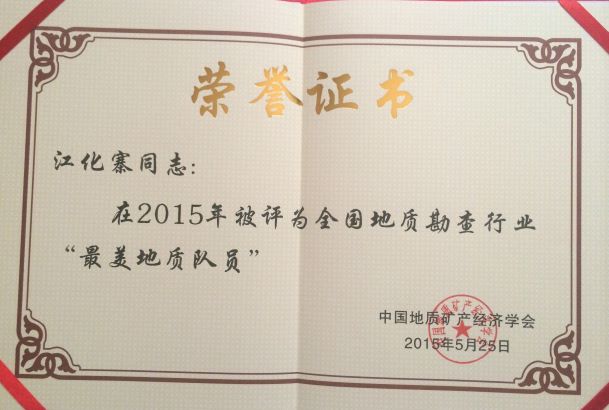 荣誉证书
江化寨同志:
在2015年被评为全国地质勘查行业
“最美地质队员”
中国地质矿产经济学会
2015年5月25日